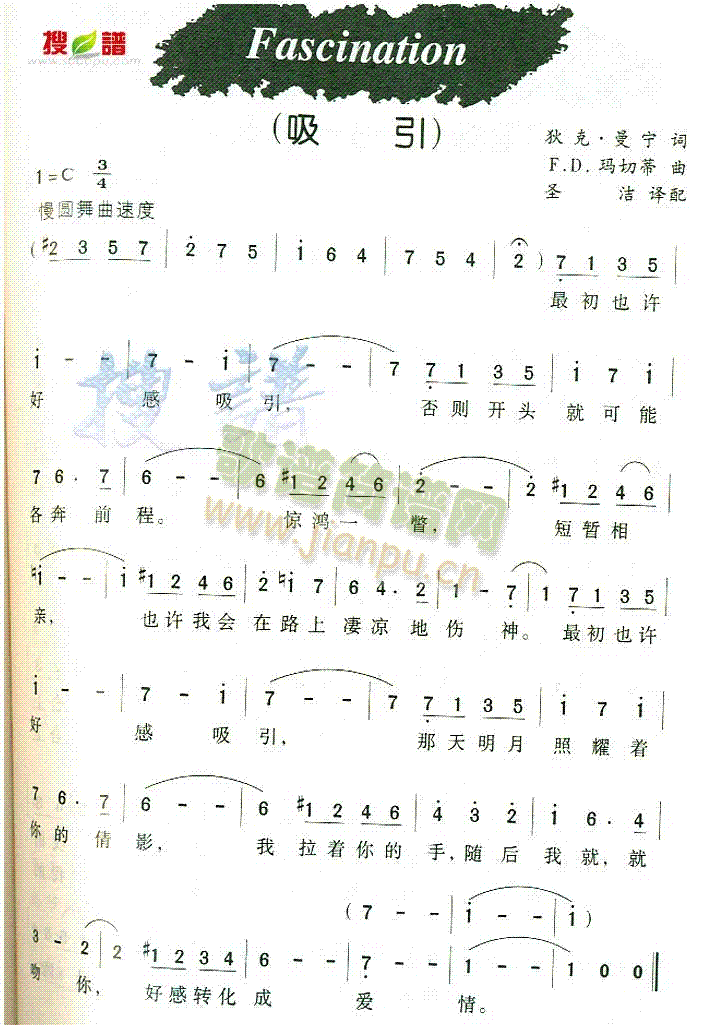 搜 譜
www.sooopu.com
Fascination
(吸 引)
狄 克·曼 宁 词
F.D.玛切蒂 曲
圣 洁 译配
1=C 3/4
慢圆舞曲速度
(#2 3 5 7 | 2 7 5 | 1 6 4 | 7 5 4 | 2) 7 1 3 5 |
最 初 也 许
i - - | 7 - i | 7 - - | 7 7 1 3 5 | i 7 i |
好 感 吸 引, 否 则 开 头 就 可 能
7 6 · 7 | 6 - - | 6 #1 2 4 6 | 2 - - | 2 #1 2 4 6 |
各 奔 前 程。 惊 鸿 一 瞥, 短 暂 相
#i - - | i #1 2 4 6 | 2 #i 7 | 6 4 · 2 | 1 - 7 | 1 7 1 3 5 |
亲, 也 许 我 会 在 路 上 凄 凉 地 伤 神。 最 初 也 许
i - - | 7 - i | 7 - - | 7 7 1 3 5 | i 7 i |
好 感 吸 引, 那 天 明 月 照 耀 着
7 6 · 7 | 6 - - | 6 #1 2 4 6 | 4 3 2 | i 6 · 4 |
你 的 倩 影, 我 拉 着 你 的 手, 随 后 我 就, 就
(7 - - | i - - | i)
3 - 2 | 2 #1 2 3 4 | 6 - - | 7 - - | 1 - - | 1 0 0 ‖
吻 你, 好 感 转 化 成 爱 情。
搜 譜
歌谱简谱网
www.jianpu.cn